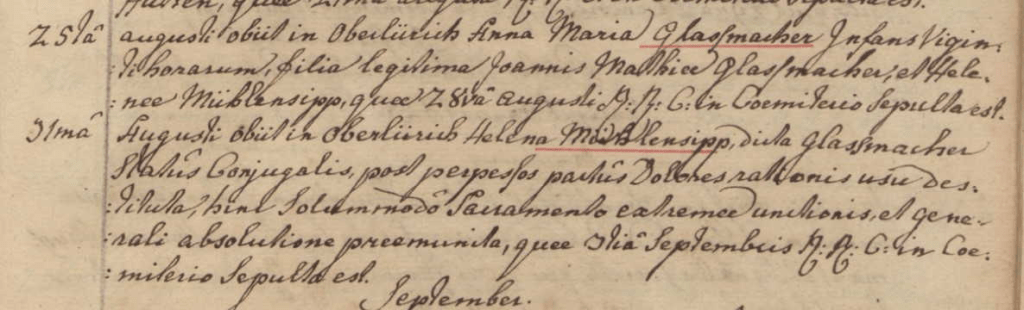 augusti obiit in Oberlürich Anna Maria Glassmacher Infans Vigin:
25tâ
:ti horarum, filia legitima Joannis Mathiae Glassmacher, et Hele:
:nae Müehlensipp, quae 28vâ augusti R: R: C: in Coemiterio Sepulta est.
31mâ Augusti obiit in Oberlürich Helena Müehlensipp, dicta Glassmacher
Statûs Conjugalis, post perpessos partûs Dolores rationis usu des:
:tituta, hinc Solummodô Sacramento extremae unctionis, et gene:
:rali absolutione praemunita, quae 3tiâ Septembris R: R: C: in Coe:
:miterio Sepulta est.
September.